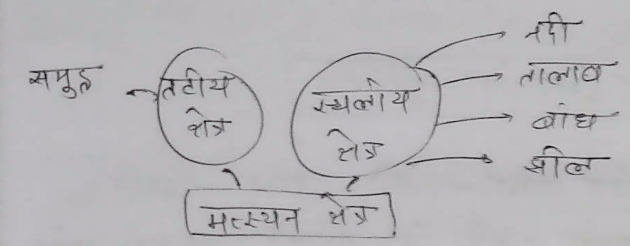 समुद्र
तटीय
क्षेत्र
स्थलीय
क्षेत्र
नदी
तालाब
बांध
झील
मत्स्यन क्षेत्र